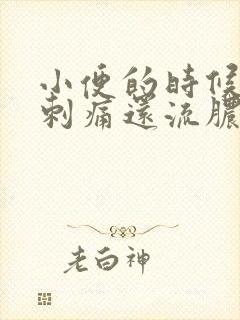 小便的時候
刺痛還流膿
老白神